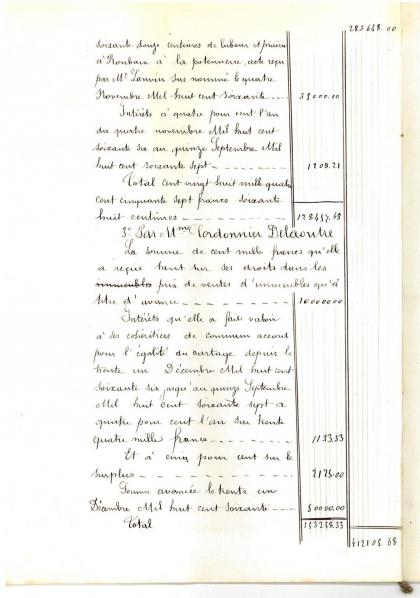 283648.00
soixante douze centiares de labour et prairie
à Roubaix à la potennerie, acte reçu
par Me Lanvin sus nommé le quatre
Novembre Mil huit cent soixante 35000.00
Intérêts à quatre pour cent l'an
du quatre novembre Mil huit cent
soixante six au quinze Septembre Mil
huit cent soixante sept 1208.21
Total cent vingt huit mille quatre
cent cinquante sept francs soixante
huit centimes 128457.68
3° Par Mme Cordonnier Delaoutre
La somme de cent mille francs qu'elle
a reçue tant sur ses droits dans les
immeubles prix de ventes d'immeubles qu'à
titre d'avance 100000.00
Intérêts qu'elle a fait valoir
à ses cohéritiers de commun accord
pour l'égalité du partage depuis le
trente un Décembre Mil huit cent
soixante six jusqu'au quinze Septembre
Mil huit cent soixante sept à
quatre pour cent l'an sur trente
quatre mille francs 1133.33
Et à cinq pour cent sur le
surplus 2125.00
Somme avancée le trente un
Décembre Mil huit cent soixante 50000.00
Total 153258.33
412105.68